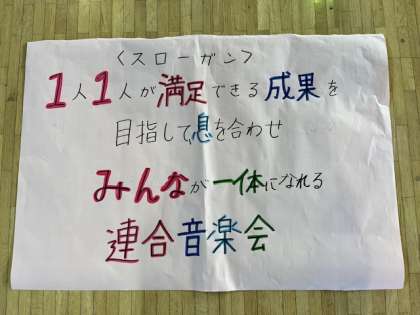 〈スローガン〉
1人1人が満足できる成果を
目指して息を合わせ
みんなが一体になれる
連合音楽会